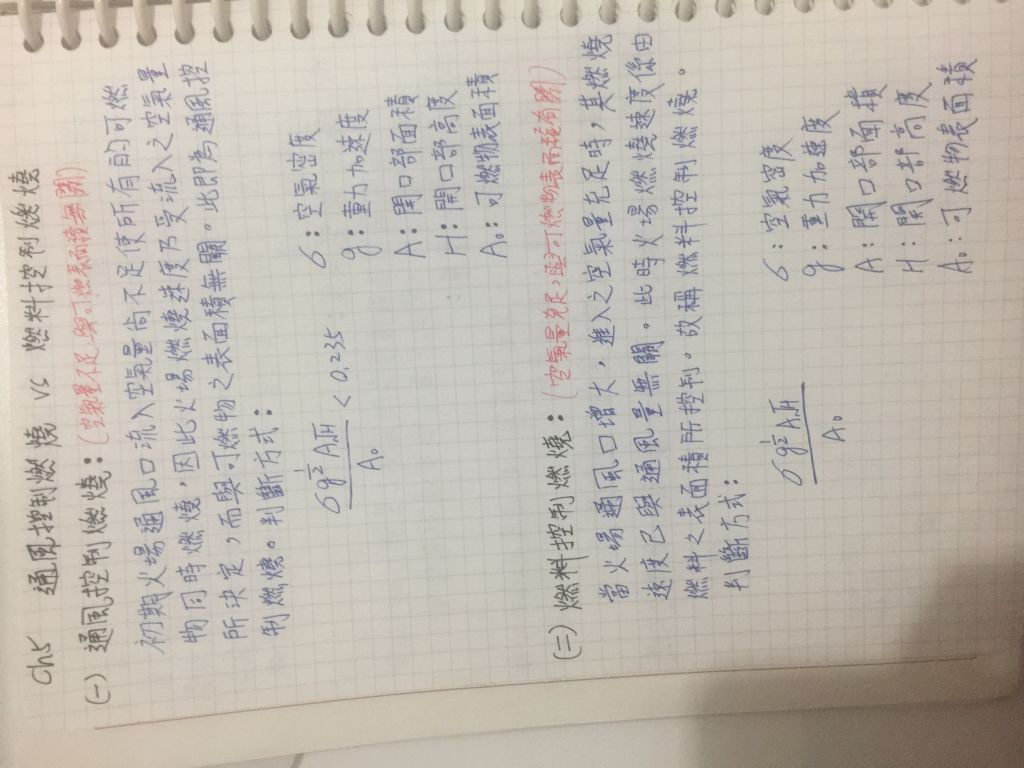 Ch5 通風控制燃燒 vs 燃料控制燃燒
(一) 通風控制燃燒：(空氣量不足，與可燃表面積無關)
初期火場通風口流入空氣量尚不足使所有的可燃
物同時燃燒，因此火場燃燒速度乃受流入之空氣量
所決定，而與可燃物之表面積無關。此即為通風控
制燃燒。判斷方式：
6g^{1/2}A√H / A₀ < 0.235
6：空氣密度
g：重力加速度
A：開口部面積
H：開口部高度
A₀：可燃物表面積
(二) 燃料控制燃燒：(空氣量充足，與可燃物表面積有關)
當火場通風口增大，進入之空氣量充足時，其燃燒
速度已與通風量無關。此時火場燃燒速度係由
燃料之表面積所控制。故稱燃料控制燃燒。
判斷方式：
6g^{1/2}A√H / A₀
6：空氣密度
g：重力加速度
A：開口部面積
H：開口部高度
A₀：可燃物表面積